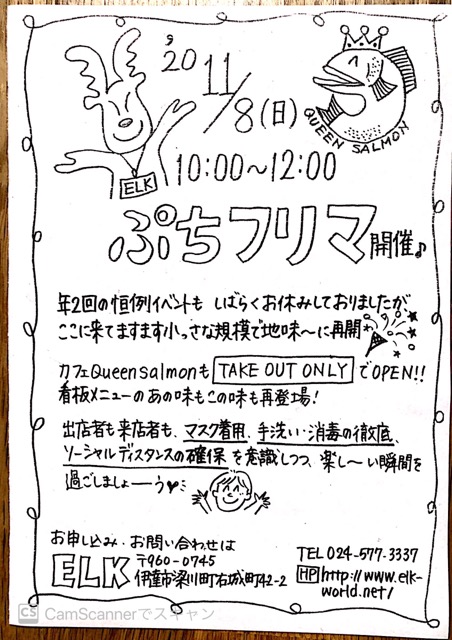 '20 11/8(日)
QUEEN SALMON
ELK
10:00~12:00
ぷちフリマ開催♪
年2回の恒例イベントも しばらくお休みしておりましたが
ここに来てますます小っさな規模で地味〜に再開
カフェQueensalmonも TAKE OUT ONLY でOPEN!!
看板メニューのあの味もこの味も再登場!
出店者も来店者も、マスク着用、手洗い・消毒の徹底、
ソーシャルディスタンスの確保 を意識しつつ、楽し〜い瞬間を
過ごしましょーう♥
お申し込み・お問い合わせは
ELK 〒960-0745
伊達市梁川町右城町42-2
TEL 024-577-3337
HP http://www.elk-
world.net/
CS CamScannerでスキャン